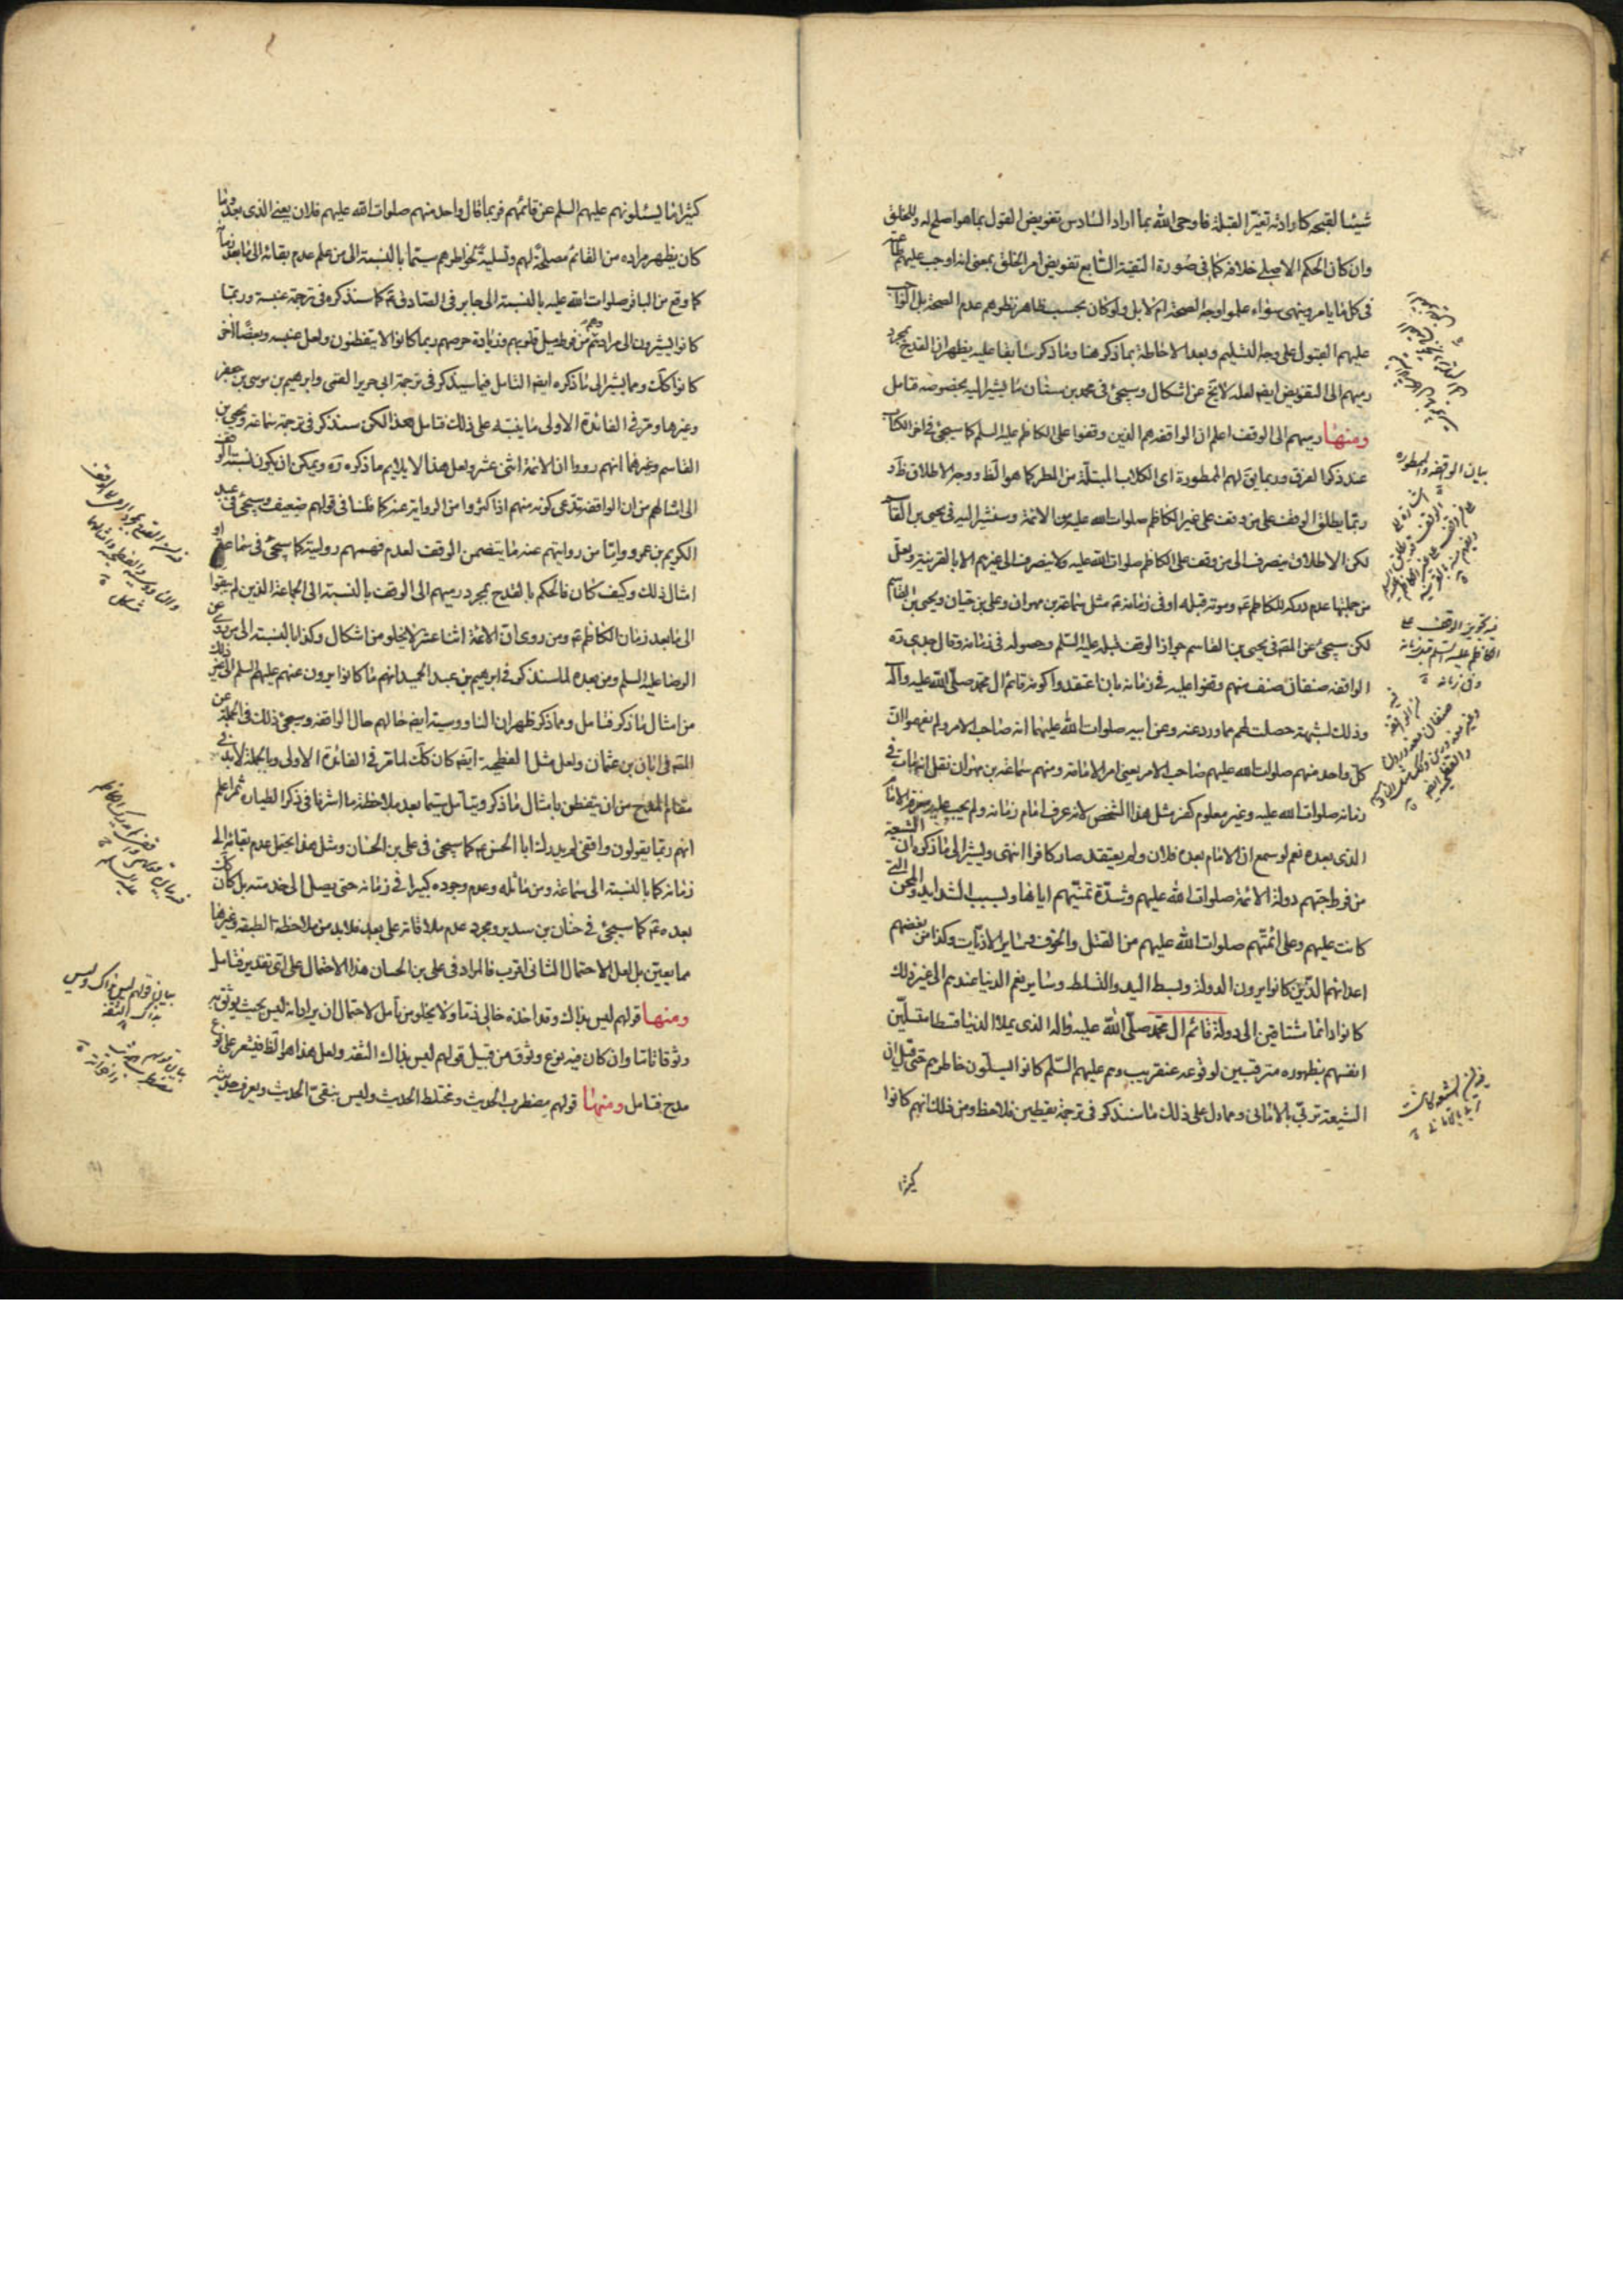 شيئا لقبحه كارادته تغيّر القبلة فاوحى الله بما اراد السادس تفويض القول بما هو اصلح له وللخلق
وان كان الحكم الاصلى خلافه كما فى صورة التقية السابع تفويض امر الخلق بمعنى انه اوجب عليهم طاعته
فى كل ما يامر وينهى سواء علموا وجه الصحة ام لا بل ولو كان بحسب ظاهر نظرهم عدم الصحة بل الواجب
عليهم القبول على وجه التسليم وبعد الاحاطة بما ذكر هنا وما ذكر سابقا عليه يظهر ان القدح بمجرد
رميهم الى التفويض ايضا لعله لا يخ عن اشكال وسيجئ فى محمد بن سنان ما يشير اليه بخصوصه فتامل
ومنها رميهم الى الوقف اعلم ان الواقفة هم الذين وقفوا على الكاظم عليه السلم كما سيجئ فى اخر الكتاب
عند ذكر الفرق وربما يق لهم الممطورة اى الكلاب المبتلّة من المطر كما هو الظ ووجه الاطلاق ظ و
ربّما يطلق الوقف على من وقف على غير الكاظم صلوات الله عليه من الائمة وسنشير اليه فى يحيى بن القاسم
لكن الاطلاق ينصرف الى من وقف على الكاظم صلوات الله عليه ولا ينصرف الى غيرهم الا بالقرينة ولعلّ
من جملتها عدم دركه للكاظم ع وموته قبله او فى زمانه ع مثل سماعة بن مهران وعلى بن حيان ويحيى بن القاسم
لكن سيجئ عن المص فى يحيى بن القاسم جواز الوقف قبله عليه السّلم وحصوله فى زمانه وقال جدى ره
الواقفة صنفان صنف منهم وقفوا عليه فى زمانه بان اعتقدوا كونه قائم ال محمد صلّى الله عليه وآله
وذلك لشبهة حصلت لهم مما ورد عنه وعن ابيه صلوات الله عليهما انه صاحب الامر ولم يفهموا ان
كلّ واحد منهم صلوات الله عليهم صاحب الامر يعنى امر الامامة ومنهم سماعة بن مهران نقل انه مات فى
زمانه صلوات الله عليه وغير معلوم كفر مثل هذا الشخص لانه عرف امام زمانه ولم يجب عليه معرفة الامام
الذى بعده نعم لو سمع ان الامام بعده فلان ولم يعتقد صار كافرا انتهى ويشير الى ما ذكره ان الشيعة
من فرط حبّهم دولة الائمة صلوات الله عليهم وشدّة تمنّيهم اياها وبسبب الشدايد والمحن التى
كانت عليهم وعلى ائمتهم صلوات الله عليهم من القتل والخوف وسائر الاذيّات وكذا من بغضهم
اعدائهم الذين كانوا يرون الدولة وبسط اليد والتسلط وسائر نعم الدنيا عندهم الى غير ذلك
كانوا دائما مشتاقين الى دولة قائم ال محمد صلّى الله عليه واله الذى يملا الدنيا قسطا مسلّين
انفسهم بظهوره مترقبين لوقوعه عنقريب وهم عليهم السّلم كانوا يسلّون خاطرهم حتى قيل ان
الشيعة تربّى بالامانى ومما دل على ذلك ما سنذكر فى ترجمة يقطين فلاحظ ومن ذلك انهم كانوا
كثيرا
بيان الواقفة والممطورة
كثيرا ما يسئلونهم عليهم السلم عن قائمهم فربما قال واحد منهم صلوات الله عليهم فلان يعنى الذى بعده وما
كان يظهر مراده من القائم مصلحة لهم وتسلية لخواطرهم سيّما بالنسبة الى من علم عدم بقائه الى ما بعد زمانه
كما وقع من الباقر صلوات الله عليه بالنسبة الى جابر فى الصادق ع كما سنذكره فى ترجمة عنبسة وربما
كانوا يشيرون الى مرادهم وهم من فرط ميل قلوبهم وزيادة حرصهم ربما كانوا لا يتفطنون ولعل عنبسه وبعضا اخر
كانوا كك ومما يشير الى ما ذكره ايضا التامل فيما سيذكر فى ترجمة ابى جرير القمى وابرهيم بن موسى بن جعفر
وغيرها ومر فى الفائدة الاولى ما ينبّه على ذلك فتامل هذا لكن سنذكر فى ترجمة سماعة ويحيى بن
القاسم وغيرهما انهم رووا ان الائمة اثنى عشر ولعل هذا لا يلايم ما ذكره ره ويمكن ان يكون نسبة الوقف
الى امثالهم من ان الواقفة تدّعى كونه منهم اذا كثروا من الرواية عنه كما ظلمنا فى قولهم ضعيف وسيجئ فى عبد
الكريم بن عمرو وامّا من روايتهم عنه ما يتضمن الوقف لعدم فهمهم روايته كما سيجئ فى سماعة او
امثال ذلك وكيف كان فالحكم بالقدح بمجرد رميهم الى الوقف بالنسبة الى الجماعة الذين لم يبقوا
الى ما بعد زمان الكاظم ع ومن روى ان الائمة اثنا عشر لا يخلو من اشكال وكذا بالنسبة الى من روى عن
الرضا عليه السلم ومن بعده لما سنذكر فى ابرهيم بن عبد الحميد انهم ما كانوا يرون عنهم عليهم السلم الى غير ذلك
من امثال ما ذكر فتامل ومما ذكر ظهر ان الناووسية ايضا حالهم حال الواقفة وسيجئ ذلك فى الجملة عن
المص فى ابان بن عثمان ولعل مثل الفطحية ايضا كان كك لما مر فى الفائدة الاولى وبالجملة لا بد فى
مقام القدح من ان يتفطن بامثال ما ذكر ويتامل سيّما بعد ملاحظة ما اشرنا فى ذكر الطيان ثم اعلم
انهم ربما يقولون واقفى لم يدرك ابا الحسن ع كما سيجئ فى على بن الحسان ومثل هذا يحتمل عدم بقائه الى
زمانه كما بالنسبة الى سماعة ومن ماثله وعدم وجوده كبيرا فى زمانه حتى يصل الى خدمته بل كان كك
بعده ع كما سيجئ فى حنان بن سدير ومجرد عدم ملاقاته على بعد فلا بد من ملاحظة الطبقة وغيرها
مما يعين بل لعل الاحتمال الثانى اقرب فالمراد فى على بن الحسان هذا الاحتمال على اى تقدير فتامل
ومنها قولهم ليس بذاك وقد اخذه خالى ذمّا ولا يخلو من تامل لاحتمال ان يراد انه ليس بحيث يوثق به
وثوقا تاما وان كان فيه نوع وثوق من قبيل قولهم ليس بذاك الثقة ولعل هذا هو الظ فيشعر على نوع
مدح فتامل ومنها قولهم مضطرب الحديث ومختلط الحديث وليس بنقىّ الحديث ويعرف حديثه